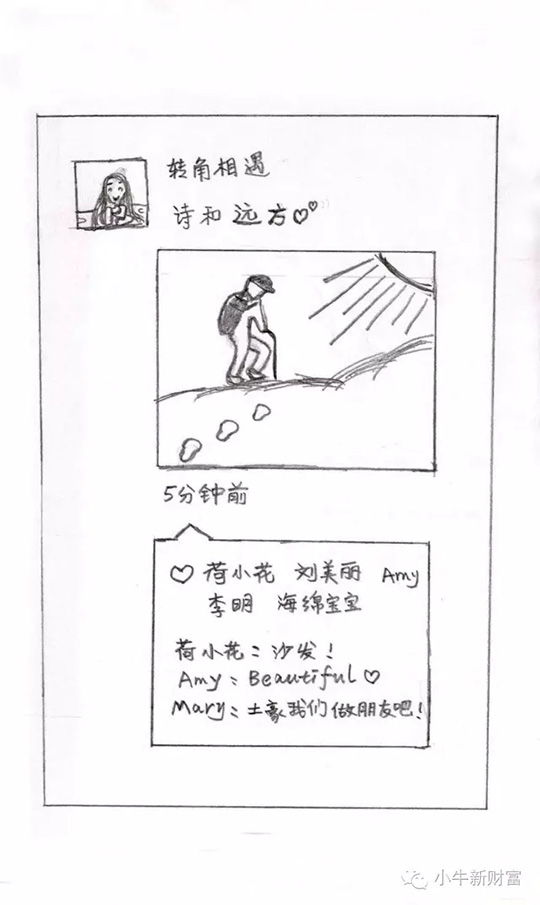 转角相遇
诗和远方♡♡
5分钟前
♡ 荷小花 刘美丽 Amy
李明 海绵宝宝
荷小花：沙发！
Amy：Beautiful♡
Mary：土豪我们做朋友吧！
小牛新财富